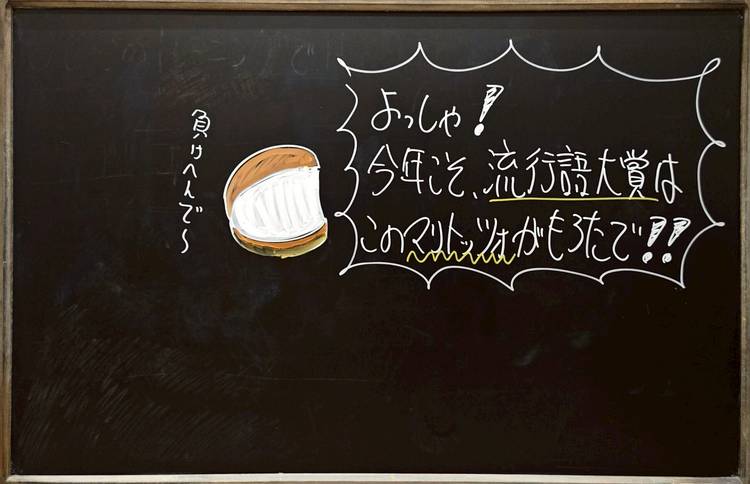 よっしゃ!
今年こそ、流行語大賞は
このマリトッツォがもろたで!!
負けへんで〜